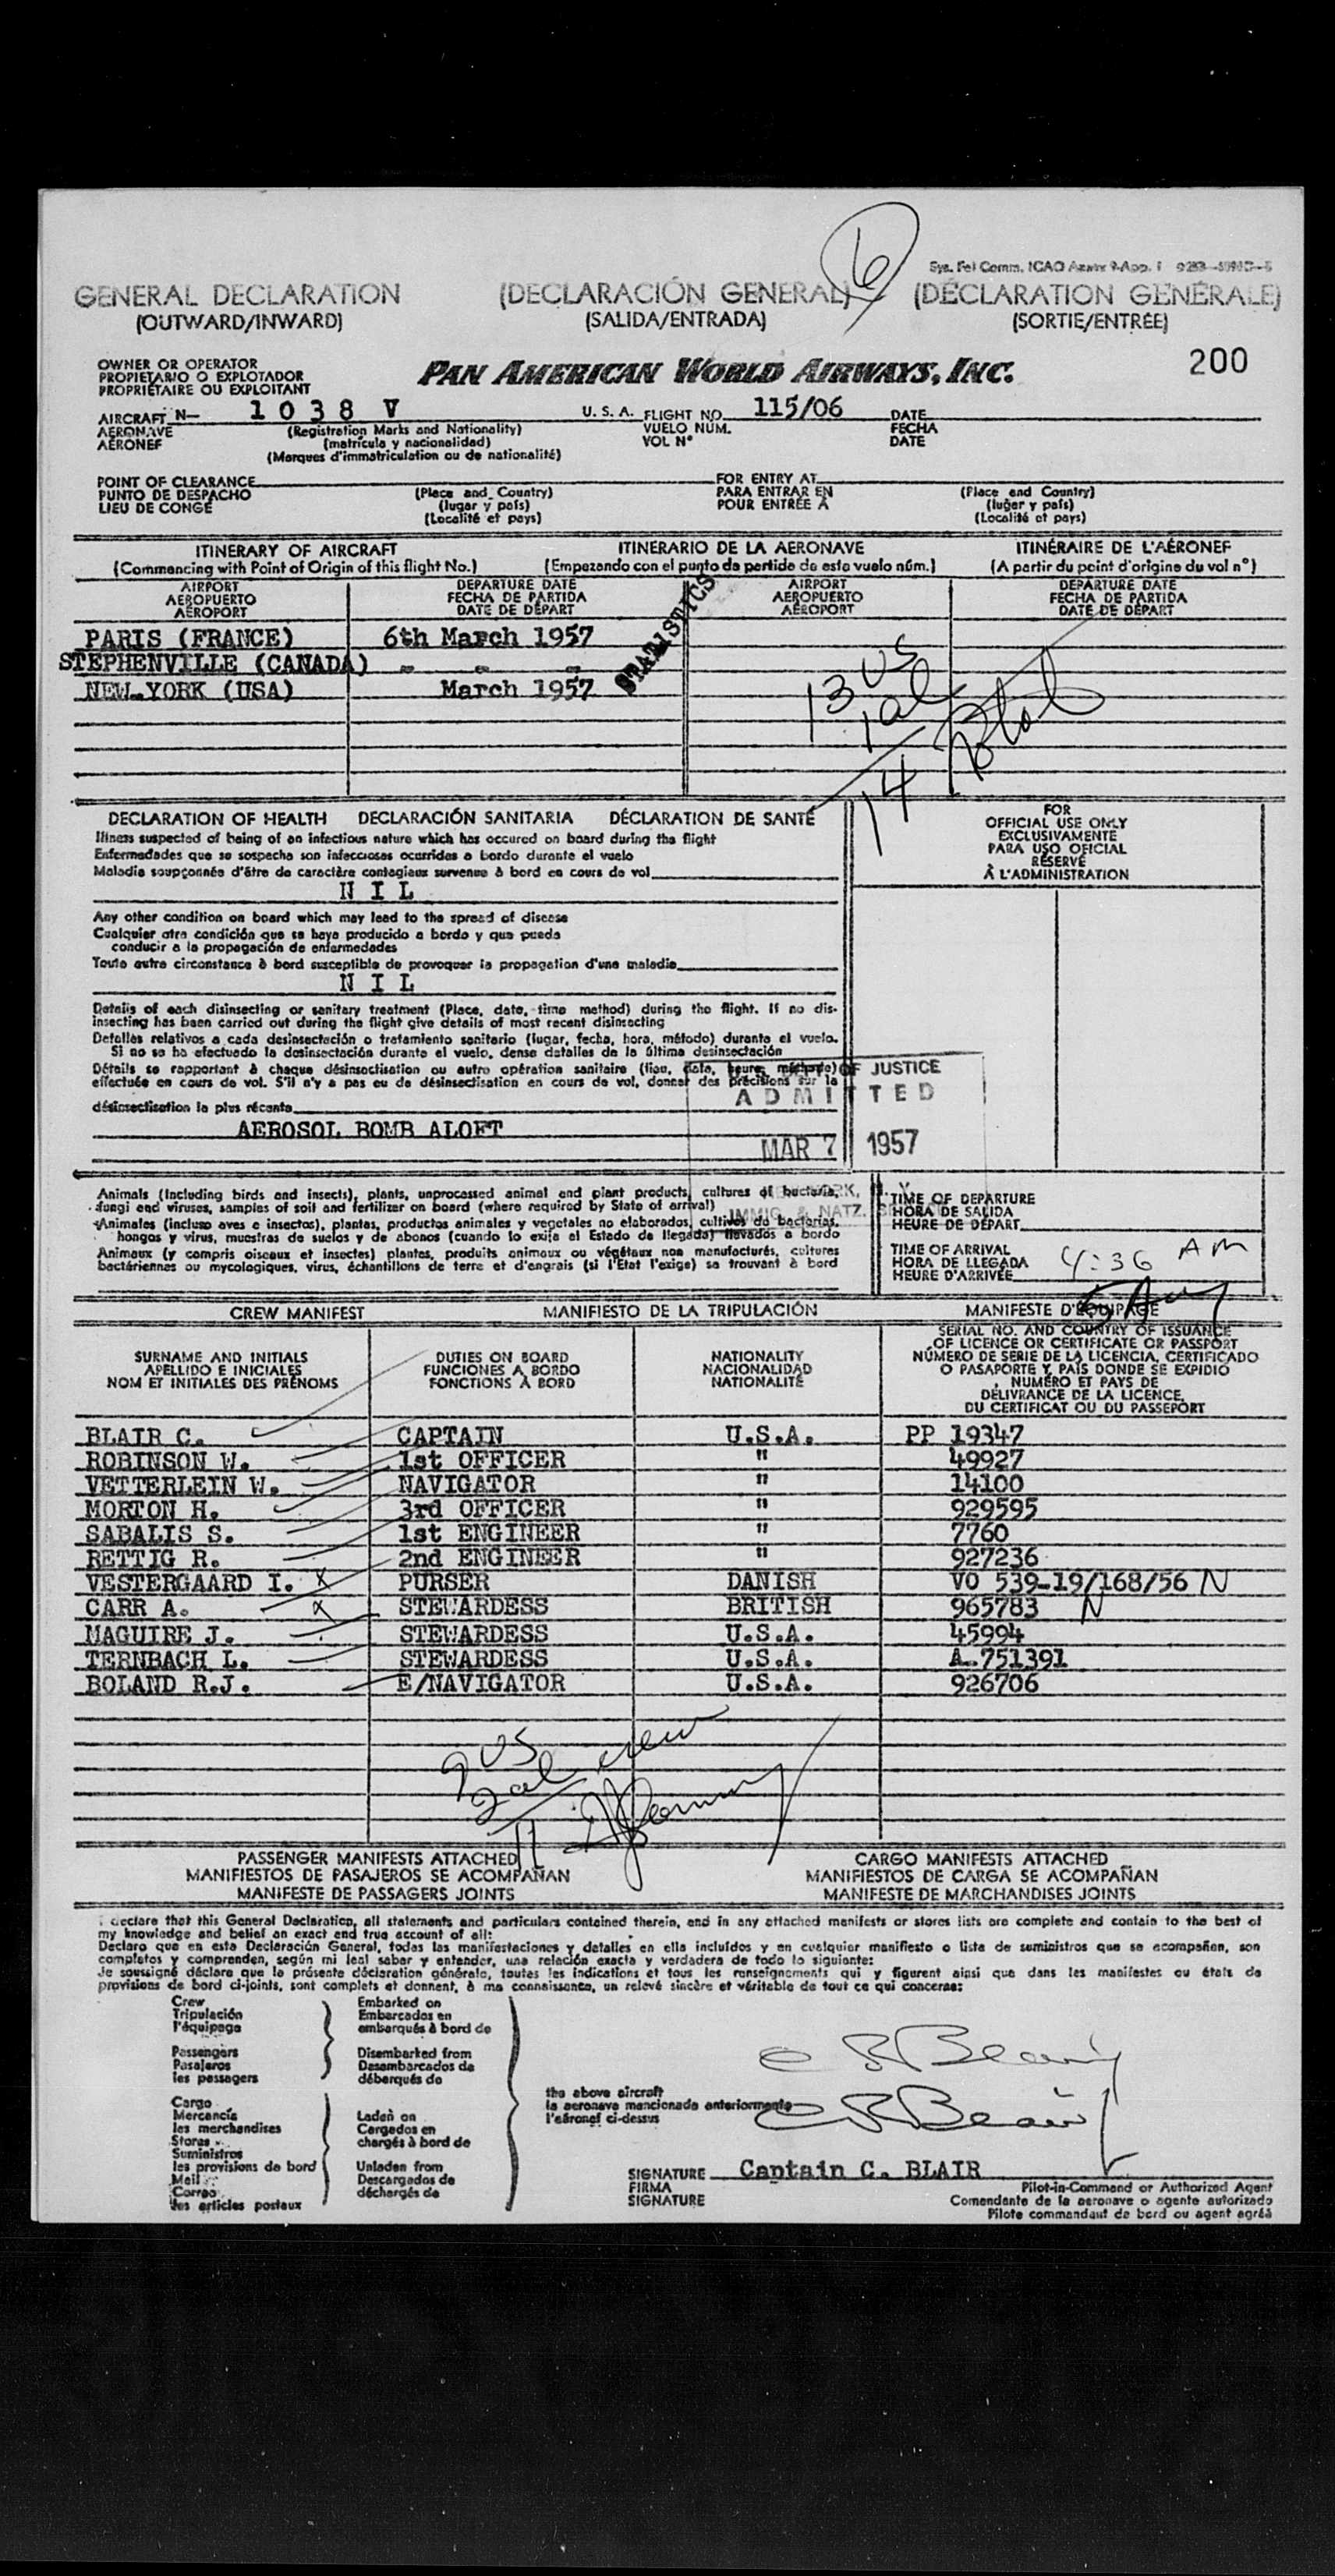 6
Sys. Fel Comm. ICAO Annex 9-App. 1
GENERAL DECLARATION (DECLARACIÓN GENERAL) (DÉCLARATION GÉNÉRALE)
(OUTWARD/INWARD) (SALIDA/ENTRADA) (SORTIE/ENTRÉE)
OWNER OR OPERATOR
PROPIETARIO O EXPLOTADOR
PROPRIÉTAIRE OU EXPLOITANT
PAN AMERICAN WORLD AIRWAYS, INC.
200
AIRCRAFT N— 1 0 3 8 V U. S. A. FLIGHT NO. 115/06 DATE
AERONAVE (Registration Marks and Nationality) VUELO NÚM. FECHA
AÉRONEF (matrícula y nacionalidad) VOL Nº DATE
(Marques d'immatriculation ou de nationalité)
POINT OF CLEARANCE FOR ENTRY AT
PUNTO DE DESPACHO (Place and Country) PARA ENTRAR EN (Place and Country)
LIEU DE CONGÉ (lugar y país) POUR ENTRÉE À (lugar y país)
(Localité et pays) (Localité et pays)
ITINERARY OF AIRCRAFT ITINERARIO DE LA AERONAVE ITINÉRAIRE DE L'AÉRONEF
(Commencing with Point of Origin of this flight No.) (Empezando con el punto de partida de este vuelo núm.) (A partir du point d'origine du vol nº)
AIRPORT DEPARTURE DATE AIRPORT DEPARTURE DATE
AEROPUERTO FECHA DE PARTIDA AEROPUERTO FECHA DE PARTIDA
AÉROPORT DATE DE DÉPART AÉROPORT DATE DE DÉPART
STATISTICS
PARIS (FRANCE) 6th March 1957
STEPHENVILLE (CANADA) " " "
NEW YORK (USA) March 1957
13 US
1 al
14
DECLARATION OF HEALTH DECLARACIÓN SANITARIA DÉCLARATION DE SANTÉ
Illness suspected of being of an infectious nature which has occured on board during the flight
Enfermedades que se sospecha son infecciosas ocurridas a bordo durante el vuelo
Maladie soupçonnée d'être de caractère contagieux survenue à bord en cours de vol
N I L
Any other condition on board which may lead to the spread of disease
Cualquier otra condición que se haya producido a bordo y que pueda
conducir a la propagación de enfermedades
Toute autre circonstance à bord susceptible de provoquer la propagation d'une maladie
N I L
Details of each disinsecting or sanitary treatment (Place, date, time method) during the flight. If no dis-
insecting has been carried out during the flight give details of most recent disinsecting
Detalles relativos a cada desinsectación o tratamiento sanitario (lugar, fecha, hora, método) durante el vuelo.
Si no se ha efectuado la desinsectación durante el vuelo, dense detalles de la última desinsectación
Détails se rapportant à chaque désinsectisation ou autre opération sanitaire (lieu, date, heure, méthode)
effectuée en cours de vol. S'il n'y a pas eu de désinsectisation en cours de vol, donner des précisions sur la
désinsectisation la plus récente
AEROSOL BOMB ALOFT
FOR
OFFICIAL USE ONLY
EXCLUSIVAMENTE
PARA USO OFICIAL
RÉSERVÉ
À L'ADMINISTRATION
OF JUSTICE
ADMITTED
MAR 7 1957
IMMIG. & NATZ.
Animals (including birds and insects), plants, unprocessed animal and plant products, cultures of bacteria,
fungi and viruses, samples of soil and fertilizer on board (where required by State of arrival)
Animales (incluso aves e insectos), plantas, productos animales y vegetales no elaborados, cultivos de bacterias,
hongos y virus, muestras de suelos y de abonos (cuando lo exija el Estado de llegada) llevados a bordo
Animaux (y compris oiseaux et insectes) plantes, produits animaux ou végétaux non manufacturés, cultures
bactériennes ou mycologiques, virus, échantillons de terre et d'engrais (si l'Etat l'exige) se trouvant à bord
TIME OF DEPARTURE
HORA DE SALIDA
HEURE DE DÉPART
TIME OF ARRIVAL
HORA DE LLEGADA 4:36 AM
HEURE D'ARRIVÉE
CREW MANIFEST MANIFIESTO DE LA TRIPULACIÓN MANIFESTE D'ÉQUIPAGE
SURNAME AND INITIALS DUTIES ON BOARD NATIONALITY
APELLIDO E INICIALES FUNCIONES A BORDO NACIONALIDAD
NOM ET INITIALES DES PRÉNOMS FONCTIONS À BORD NATIONALITÉ
SERIAL NO. AND COUNTRY OF ISSUANCE
OF LICENCE OR CERTIFICATE OR PASSPORT
NÚMERO DE SERIE DE LA LICENCIA, CERTIFICADO
O PASAPORTE Y PAÍS DONDE SE EXPIDIÓ
NUMÉRO ET PAYS DE
DÉLIVRANCE DE LA LICENCE,
DU CERTIFICAT OU DU PASSEPORT
BLAIR C. CAPTAIN U.S.A. PP 19347
ROBINSON W. 1st OFFICER " 49927
VETTERLEIN W. NAVIGATOR " 14100
MORTON H. 3rd OFFICER " 929595
SABALIS S. 1st ENGINEER " 7760
RETTIG R. 2nd ENGINEER " 927236
VESTERGAARD I. X PURSER DANISH VO 539-19/168/56 N
CARR A. X STEWARDESS BRITISH 965783 N
MAGUIRE J. STEWARDESS U.S.A. 45994
TERNBACH L. STEWARDESS U.S.A. A-751391
BOLAND R.J. E/NAVIGATOR U.S.A. 926706
9 US
2 al crew
11
PASSENGER MANIFESTS ATTACHED CARGO MANIFESTS ATTACHED
MANIFIESTOS DE PASAJEROS SE ACOMPAÑAN MANIFIESTOS DE CARGA SE ACOMPAÑAN
MANIFESTE DE PASSAGERS JOINTS MANIFESTE DE MARCHANDISES JOINTS
I declare that this General Declaration, all statements and particulars contained therein, and in any attached manifests or stores lists are complete and contain to the best of
my knowledge and belief an exact and true account of all:
Declaro que en esta Declaración General, todas las manifestaciones y detalles en ella incluídos y en cualquier manifiesto o lista de suministros que se acompañen, son
completos y comprenden, según mi leal saber y entender, una relación exacta y verdadera de todo lo siguiente:
Je soussigné déclare que la présente déclaration générale, toutes les indications et tous les renseignements qui y figurent ainsi que dans les manifestes ou états de
provisions de bord ci-joints, sont complets et donnent, à ma connaissance, un relevé sincère et véritable de tout ce qui concerne:
Crew Embarked on
Tripulación Embarcados en
l'équipage embarqués à bord de
Passengers Disembarked from
Pasajeros Desembarcados de
les passagers débarqués de
Cargo
Mercancía Laden on
les merchandises Cargados en
Stores chargés à bord de
Suministros
les provisions de bord Unladen from
Mail Descargados de
Correo déchargés de
les articles postaux
the above aircraft
la aeronave mencionada anteriormente
l'aéronef ci-dessus
SIGNATURE Captain C. BLAIR
FIRMA
SIGNATURE
Pilot-in-Command or Authorized Agent
Comandante de la aeronave o agente autorizado
Pilote commandant de bord ou agent agréé